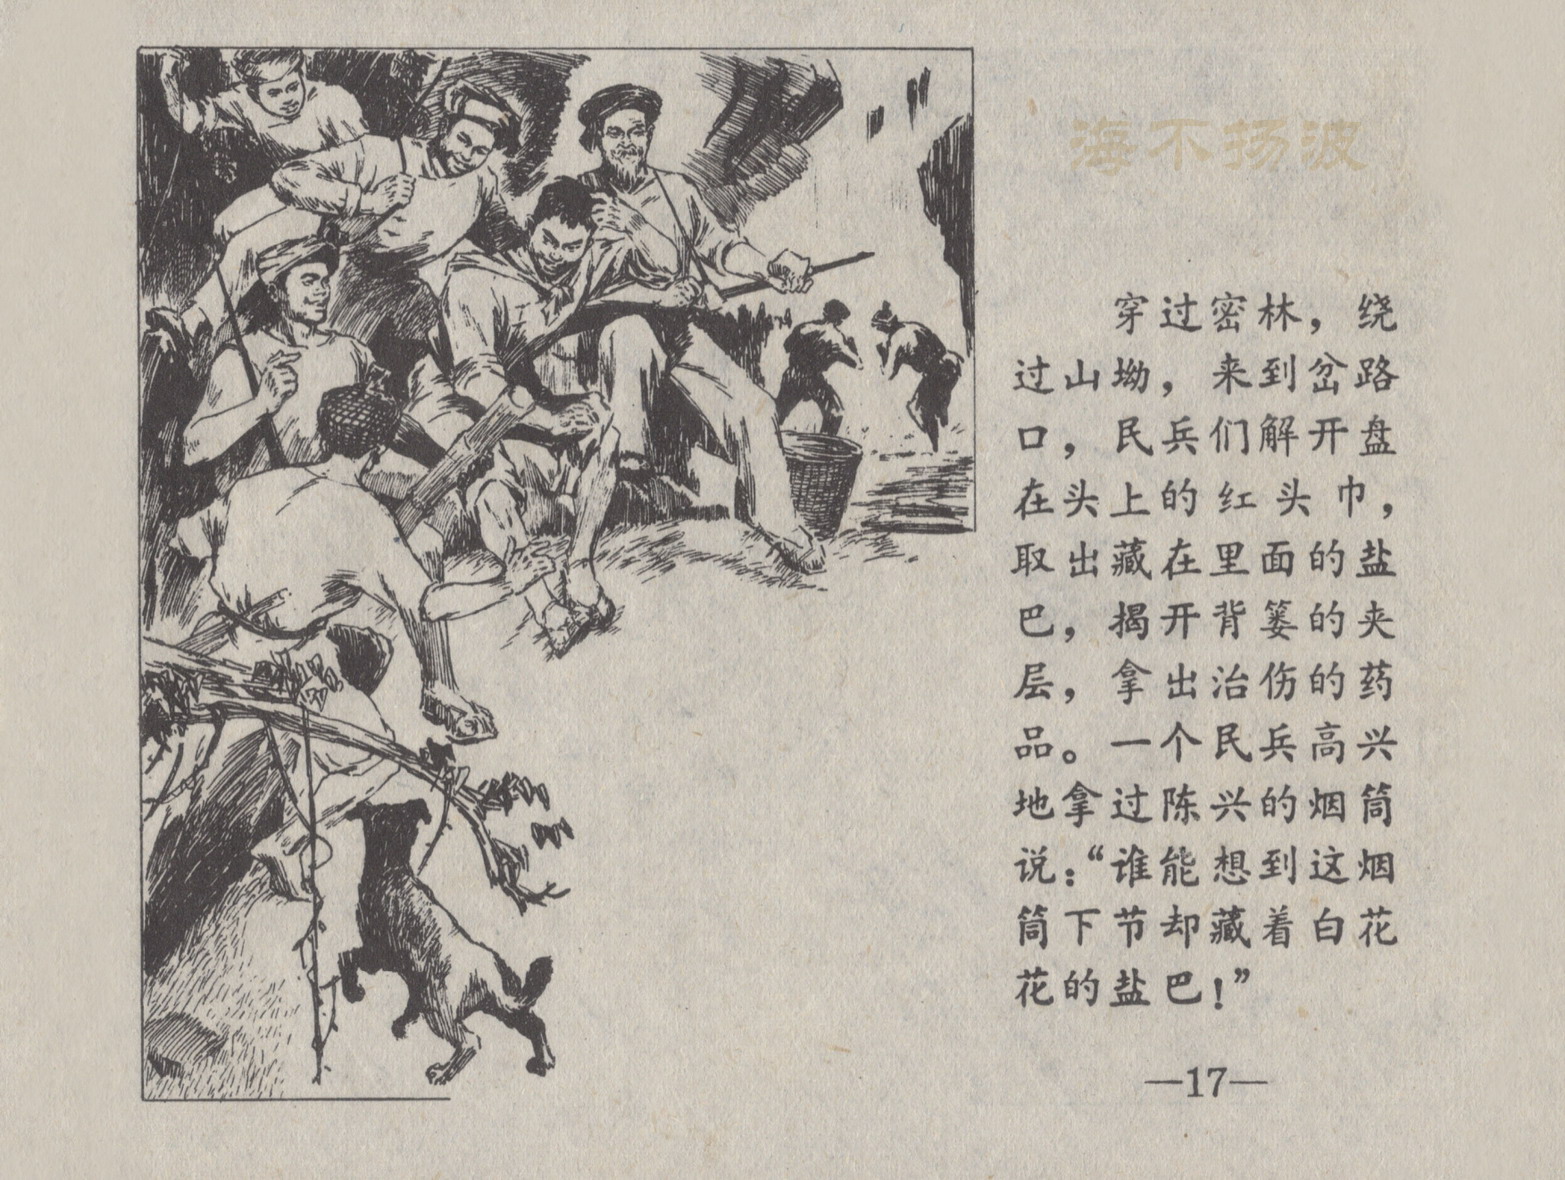 海不扬波
穿过密林，绕
过山坳，来到岔路
口，民兵们解开盘
在头上的红头巾，
取出藏在里面的盐
巴，揭开背篓的夹
层，拿出治伤的药
品。一个民兵高兴
地拿过陈兴的烟筒
说：“谁能想到这烟
筒下节却藏着白花
花的盐巴！”
—17—